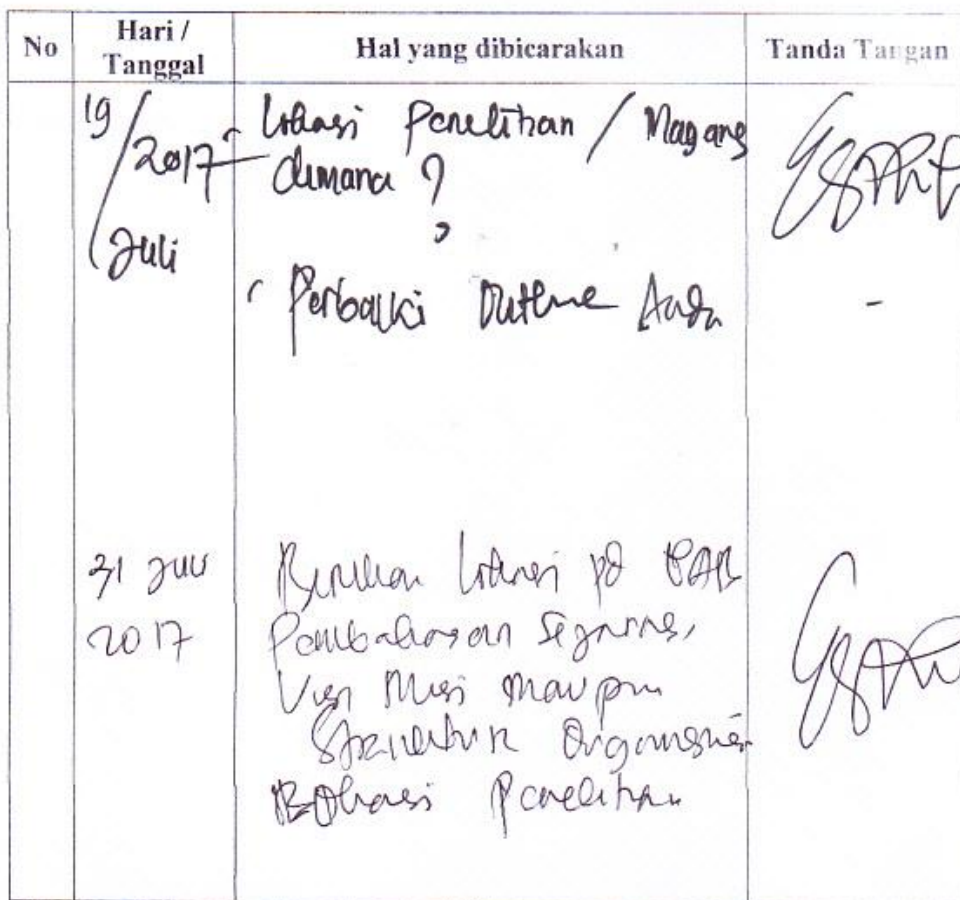 No Hari / Tanggal Hal yang dibicarakan Tanda Tangan
19 / 2017 - Lokasi Penelitian / Magang
dimana ?
Juli
- Perbaiki Outline Anda
31 Juli
2017
pd BAB
Pembahasan
Visi Misi maupun
Struktur Organisasi
Penelitian